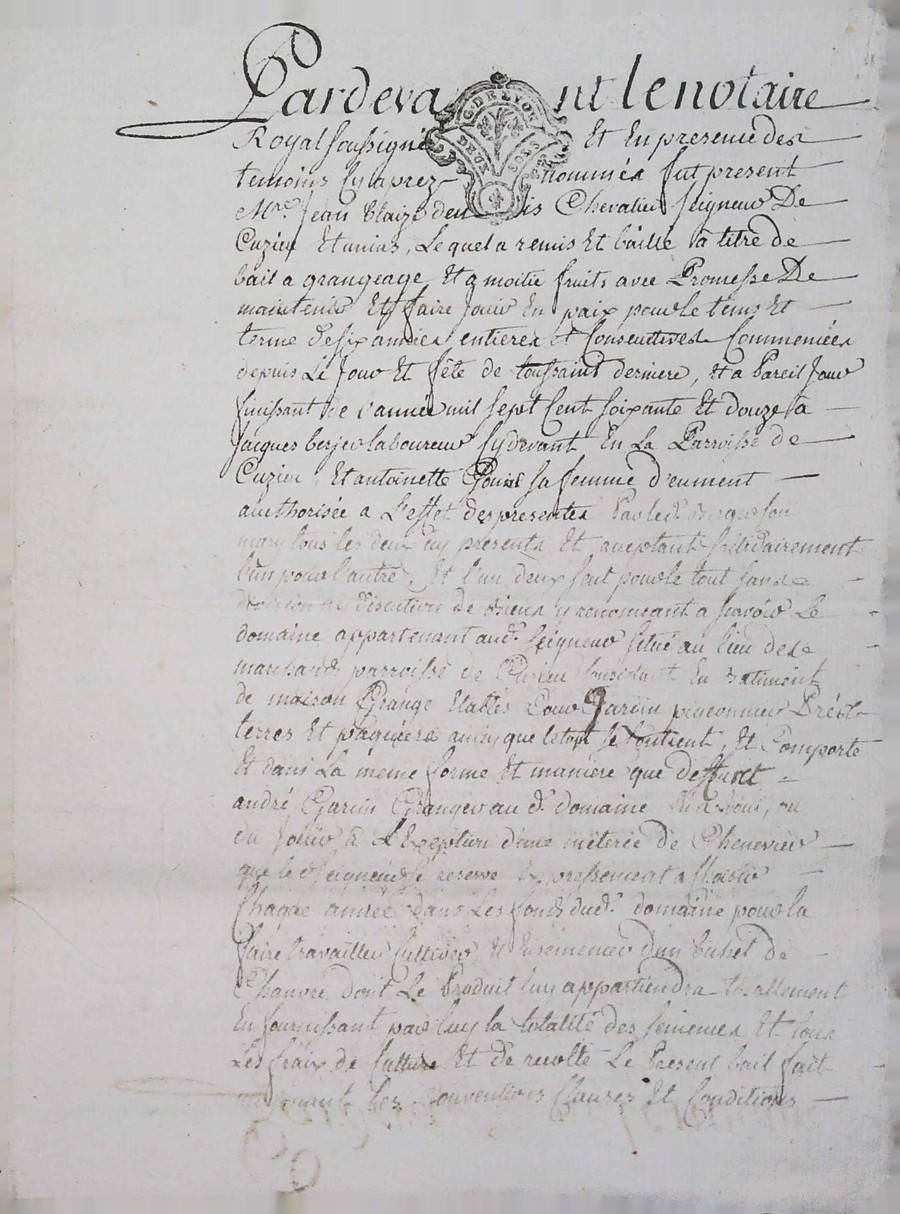 Pardevant le notaire
G. DE LYON
DEUX SOLS
Royal soussigné Et En presence des
temoins Cy aprez nommés fut present
Mre. Jean Blaize denis Chevalier Seigneur De
Cuzieu Et unias, Lequel a remis Et baillé a titre de
bail a grangeage Et a moitié fruits avec Promesse De
maintenir Et faire jouir En paix pour le tems Et
terme de six années entieres Et Consecutives Commencées
depuis Le Jour Et fête de toussaint derniere, Et a Pareil Jour
finissant de l'année mil sept Cent soixante Et douze a
Jacques berger laboureur Cydevant En La Parroisse de
Cuzieu, Et antoinette sa femme d'eument
authorisée a L'effet des presentes Par led. Berger son
mary tous les deux icy presents Et aceptant solidairement
l'un pour l'autre, Et l'un deux seul pour le tout sans
division ny discution de biens y renonceant a savoir Le
domaine appartenant aud. Seigneur situé au lieu des
marchands parroisse de Cuzieu Consistant En Batiment
de maison Grange Etables Cour Jardin pigeonnier Prés
terres Et paquiers ainsy que le tout se Contient, Et Comporte
Et dans La meme forme Et maniere que deffunct
andré Garin Granger au d. domaine En a Joui, ou
du Jouir a L'Exeption d'une meterée de Chenevier
que le d. Seigneur se reserve Expressement a Choisir
Chaque année dans Les fonds dud. domaine pour la
faire travailler Cultiver, Et Ensemencer d'un bichet de
Chanvre dont Le Produit luy appartiendra totallement
En fournissant par luy la totalité des semences Et tous
Les fraix de Culture Et de recolte Le Present bail fait
moyenant Les Conventions Clauses Et Conditions